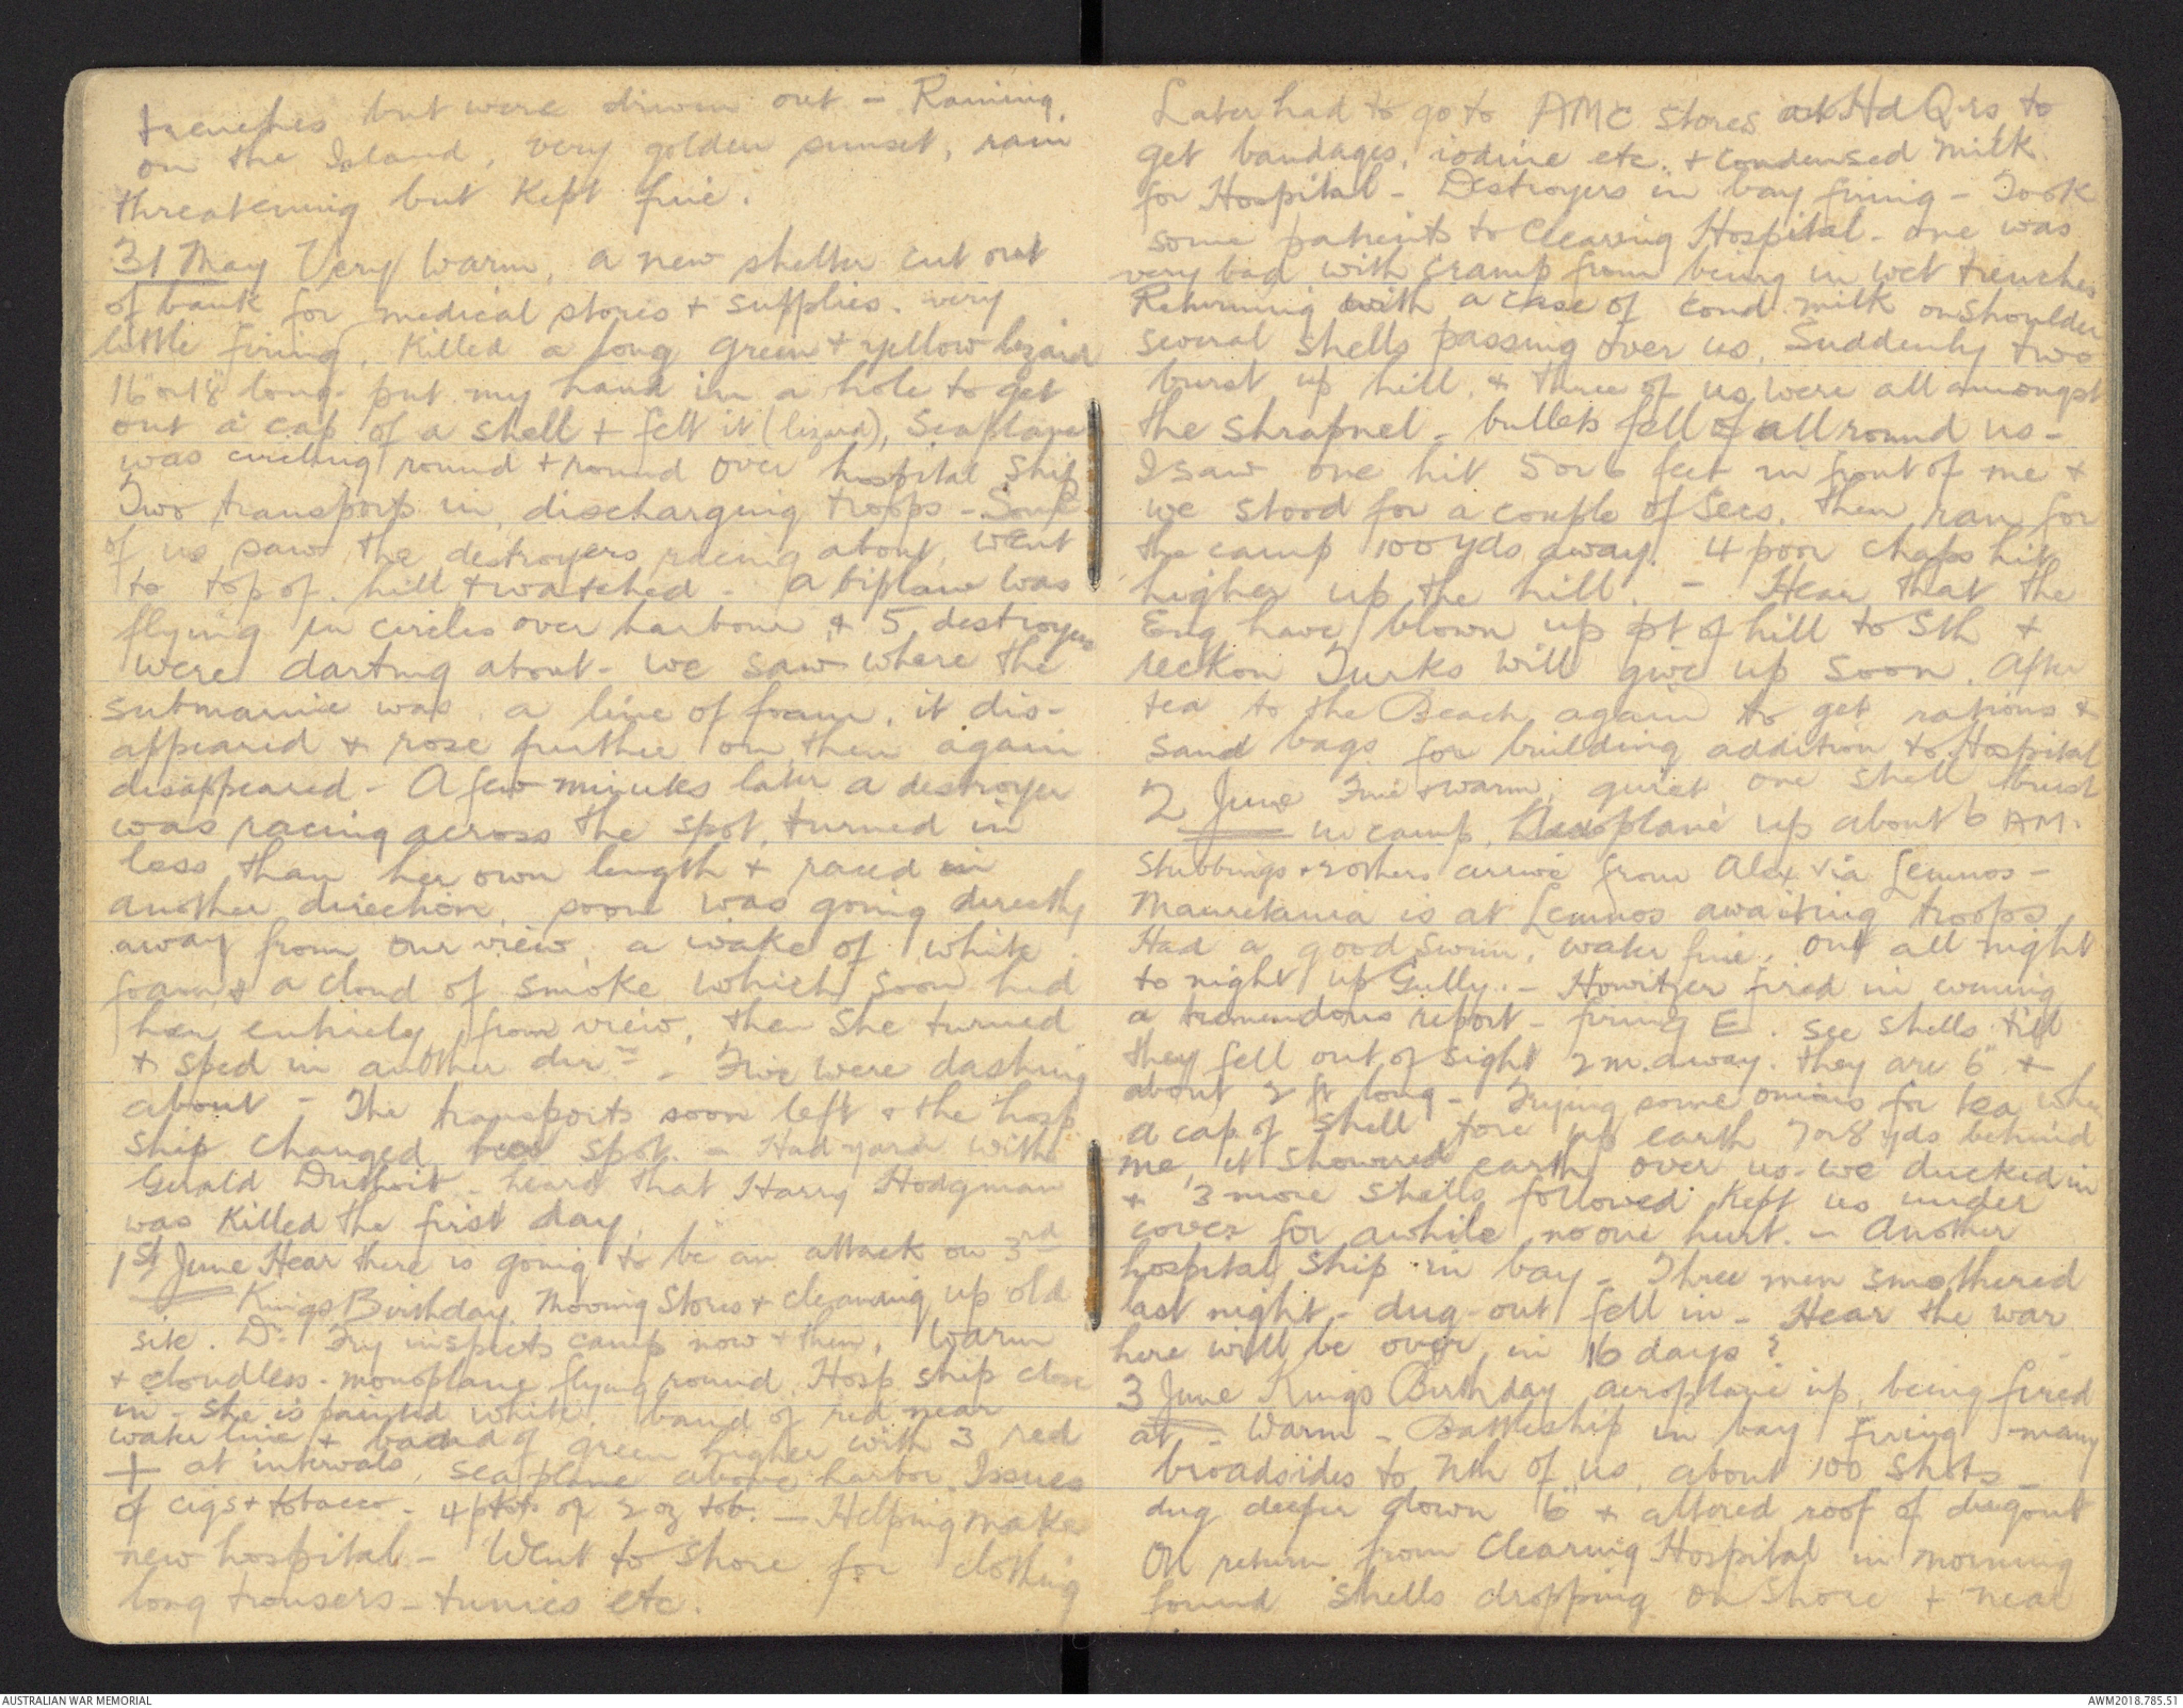 trenches but were driven out - Raining
on the Island, very golden sunset, rain
threatening but kept fine.
31 May Very warm, a new shelter cut out
of bank for medical stores + supplies. very
little firing, Killed a long green + yellow lizard
16" or 18" long. put my hand in a hole to get
out a cap of a shell + felt it (lizard), Seaplane
was circling round + round over hospital ship
Two transports in, discharging troops - Some
of us saw the destroyers racing about, went
to top of hill + watched - a biplane was
flying in circles over harbour & 5 destroyers
were darting about - we saw where the
submarine was, a line of foam, it dis-
appeared + rose further on, then again
disappeared - A few minutes later a destroyer
was racing across the spot, turned in
less than her own length + raced in
another direction, soon was going directly
away from our view, a wake of white
foam & a cloud of smoke which soon hid
her entirely from view, then she turned
+ sped in another dirn - Five were dashing
about - The transports soon left + the hosp
ship changed her spot. - Had yarn with
Gerald - heard that Harry Hodgman
was killed the first day.
1st June Hear there is going to be an attack on 3rd
Kings Birthday. Moving Stores + cleaning up old
site. Dr Fry inspects camp now + then, Warm
+ cloudless - monoplane flying round, Hosp ship close
in - she is painted white, band of red near
water line + band of green higher with 3 red
+ at intervals, seaplane above harbor. Issues
of cigs + tobacco - 4 pkts of 2 oz tob. - Helping make
new hospital - Went to shore for clothing
long trousers - tunics etc.
Later had to go to AMC stores at Hd Qrs to
get bandages, iodine etc. + condensed milk
for Hospital - Destroyers in bay firing - Took
some patients to Clearing Hospital - one was
very bad with cramp from being in wet trenches
Returning with a case of cond milk on shoulder
several shells passing over us, Suddenly two
burst up hill, & three of us were all amongst
the shrapnel - bullets fell all round us -
I saw one hit 5 or 6 feet in front of me +
we stood for a couple of secs, then ran for
the camp 100 yds away. 4 poor chaps hit
higher up the hill. - Hear that the
Eng have blown up pt of hill to Sth +
reckon Turks will give up soon. After
tea to the Beach again to get rations &
sand bags for building addition to Hospital
2 June Fine + warm, quiet, one shell burst
in camp, Aeroplane up about 6 AM.
Stubbings + 2 others arrive from Alex via Lemnos -
Mauretania is at Lemnos awaiting troops,
Had a good swim, water fine, out all night
to night up Gully. - Howitzer fired in evening
a tremendous report - firing E. see shells till
they fell out of sight 2 m. away. they are 6" +
about 2 ft long - Frying some onions for tea when
a cap of shell tore up earth 7 or 8 yds behind
me, it showered earth over us - we ducked in
+ 3 more shells followed kept us under
cover for awhile, no one hurt. - Another
hospital ship in bay - Three men smothered
last night - dug-out fell in - Hear the war
here will be over in 16 days?
3 June Kings Birthday aeroplane up, being fired
at - Warm - Battleship in bay firing many
broadsides to Nth of us, about 100 shots -
dug deeper down 6" + altered roof of dugout
On return from Clearing Hospital in morning
found shells dropping on shore + near
AUSTRALIAN WAR MEMORIAL
AWM2018.785.51